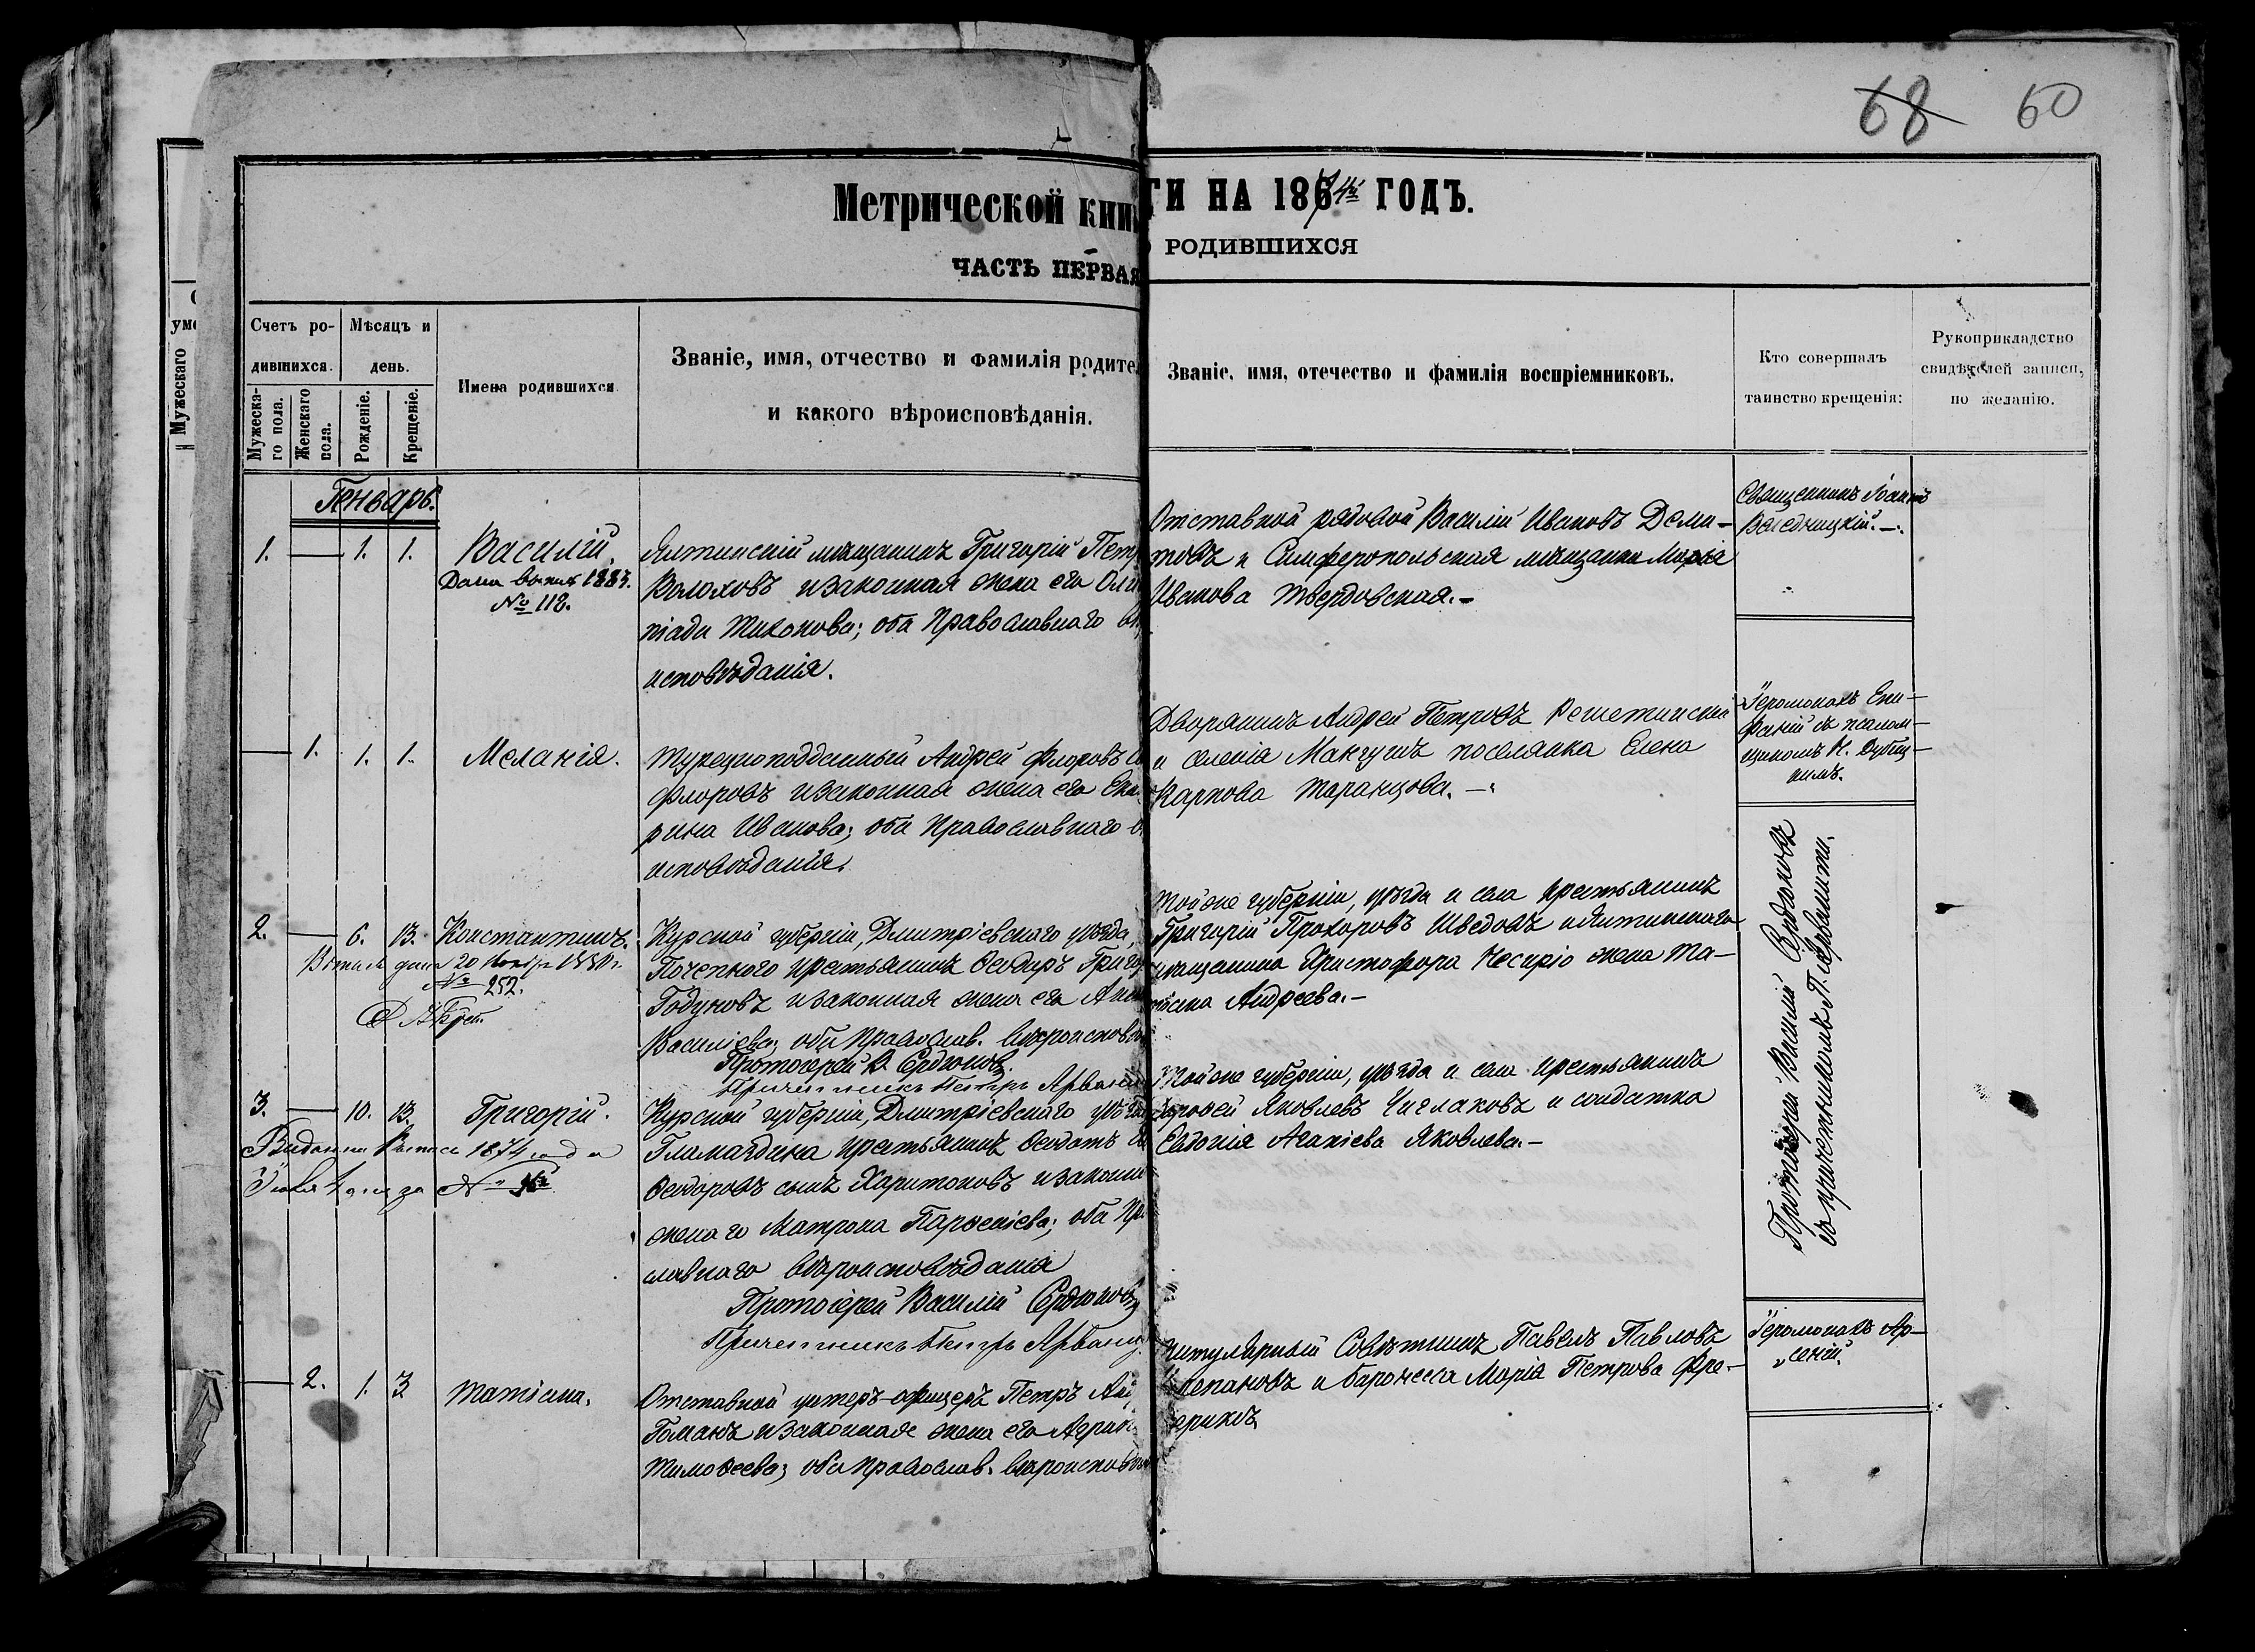 68 60
Метрической кни
ГИ НА 1874й ГОДЪ.
ЧАСТЬ ПЕРВАЯ
О РОДИВШИХСЯ
Счетъ ро-
дившихся.
Мужеска-
го пола.
Женскаго
пола.
Мѣсяцъ и
день.
Рожденіе.
Крещеніе.
Имена родившихся.
Званіе, имя, отчество и фамилія родите
и какого вѣроисповѣданія.
Званіе, имя, отечество и фамилія воспріемниковъ.
Кто совершалъ
таинство крещенія:
Рукоприкладство
свидѣтелей записи,
по желанію.
Мужескаго
Генварь.
1. — 1. 1. Василій
Дана выпись 1883.
№ 112.
Ялтинскій мѣщанинъ Григорій Петр
Волоховъ и законная жена его Оли
піада Тихонова; оба Православнаго вѣ
исповѣданія.
Отставной рядовой Василій Ивановъ Дема-
товъ и Симферопольская мѣщанка Марья
Иванова Твердовская.-
Священникъ Іоаннъ
— 1. 1. 1. Меланія.
Турецкоподданный Андрей Флоровъ
Флоровъ и законная жена его Ека
рина Иванова; оба Православнаго в
исповѣданія.
Дворянинъ Андрей Петровъ Решетинскій
и селенія Мангушъ поселянка Елена
Карпова Таранцова.-
Іеромонахъ Епи-
фаній съ псалом-
щикомъ Н.
2. — 6. 13. Константинъ.
№ 252.
Курской губерніи, Дмитріевскаго уѣзда,
Поченного крестьянинъ Ѳеодоръ Григор
Годуновъ и законная жена его
Василіева; оба Православ. вѣроисповѣ
Протоіерей В. Сердюковъ.
Причетникъ Петръ Арвани
Той же губерніи, уѣзда и села крестьянинъ
Григорій Прохоровъ Шведовъ и Ялтинскаго
мѣщанина Христофора жена Та-
тіана Андреева.-
Протоіерей Василій Сердюковъ
съ причетникомъ П. Арванити.
3. — 10. 13. Григорій.
Выдана выпись 1874 года
Курской губерніи, Дмитріевскаго уѣзда
крестьянинъ Ѳеодотъ
Ѳеодоровъ сынъ Харитоновъ и законн
жена го Матрона Парѳеніева; оба Пр
славнаго вѣроисповѣданія
Протоіерей Василій Сердюковъ
Причетникъ Петръ Арвани
Той же губерніи, уѣзда и села крестьянинъ
Яковлевъ Чиглаковъ и солдатка
Евдокія Агапіева Яковлева.-
— 2. 1. 3 Татіана.
Отставной унтеръ-офицеръ Петръ
Гоманъ и законная жена его Аграп
Тимоѳеева; оба православ. вѣроисповѣ
Титулярный Совѣтникъ Павелъ Павловъ
Степановъ и баронесса Марія Петрова Фре-
дериксъ
Іеромонахъ Ар-
сеній.